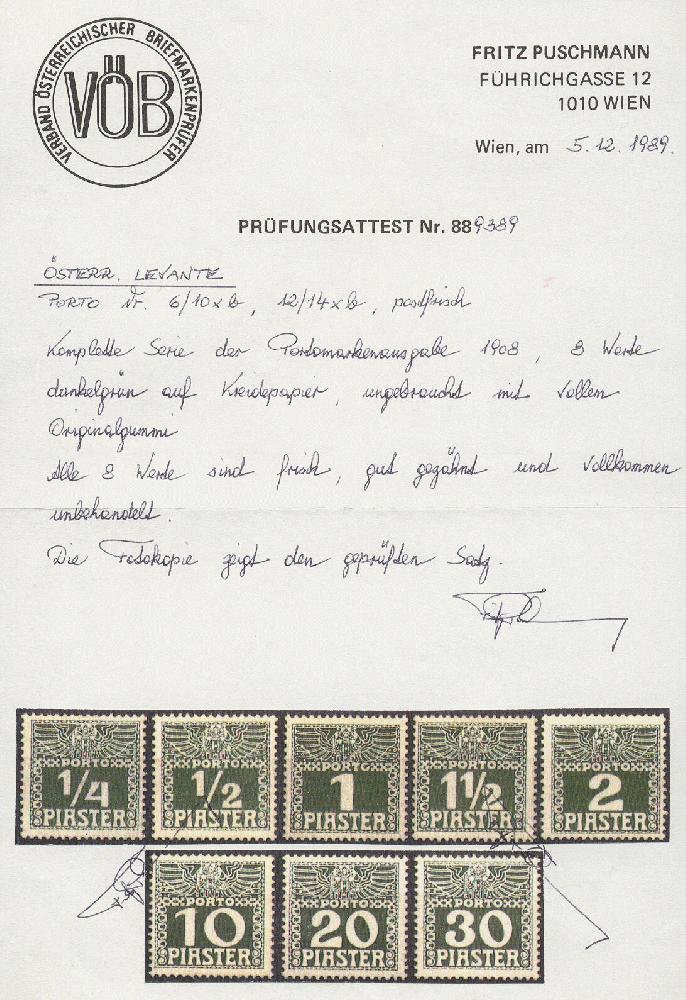 VERBAND ÖSTERREICHISCHER BRIEFMARKENPRÜFER
VÖB
FRITZ PUSCHMANN
FÜHRICHGASSE 12
1010 WIEN
Wien, am 5.12.1989.
PRÜFUNGSATTEST Nr. 889389
ÖSTERR. LEVANTE
PORTO Nr. 6/10xb, 12/14xb, postfrisch
Komplette Serie der Portomarkenausgabe 1908, 8 Werte
dunkelgrün auf Kreidepapier, ungebraucht mit vollem
Originalgummi
Alle 8 Werte sind frisch, gut gezähnt und vollkommen
unbehandelt.
Die Fotokopie zeigt den geprüften Satz.
PORTO PORTO PORTO PORTO PORTO
1/4 1/2 1 1 1/2 2
PIASTER PIASTER PIASTER PIASTER PIASTER
PORTO PORTO PORTO
10 20 30
PIASTER PIASTER PIASTER